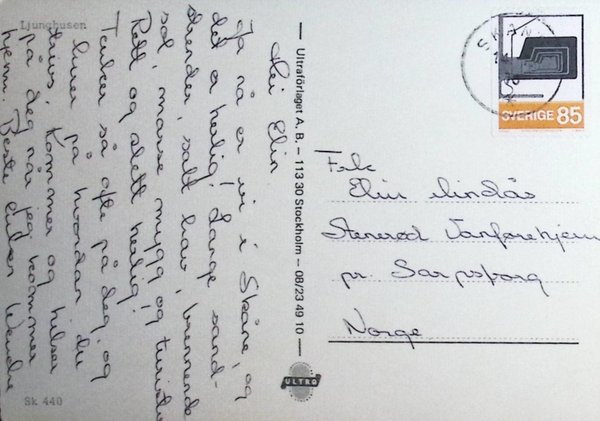 Ljunghusen
Hei Elin
Ja nå er vi i Skåne, og
det er heilig! Lange sand-
strender, salt hav, brennende
sol, masse mygg og turister
Rett og slett heilig!
Tenker så ofte på deg, og
lurer på hvordan du
trives. Kommer og hilser
på deg når jeg kommer
hjem. Beste hilsen Wenche
Sk 440
Ultraförlaget A. B. – 113 30 Stockholm – 08/23 49 10
ULTRA
SKAN
SVERIGE 85
Frk
Elin Lindås
Stenerød Vanførehjem
pr. Sarpsborg
Norge